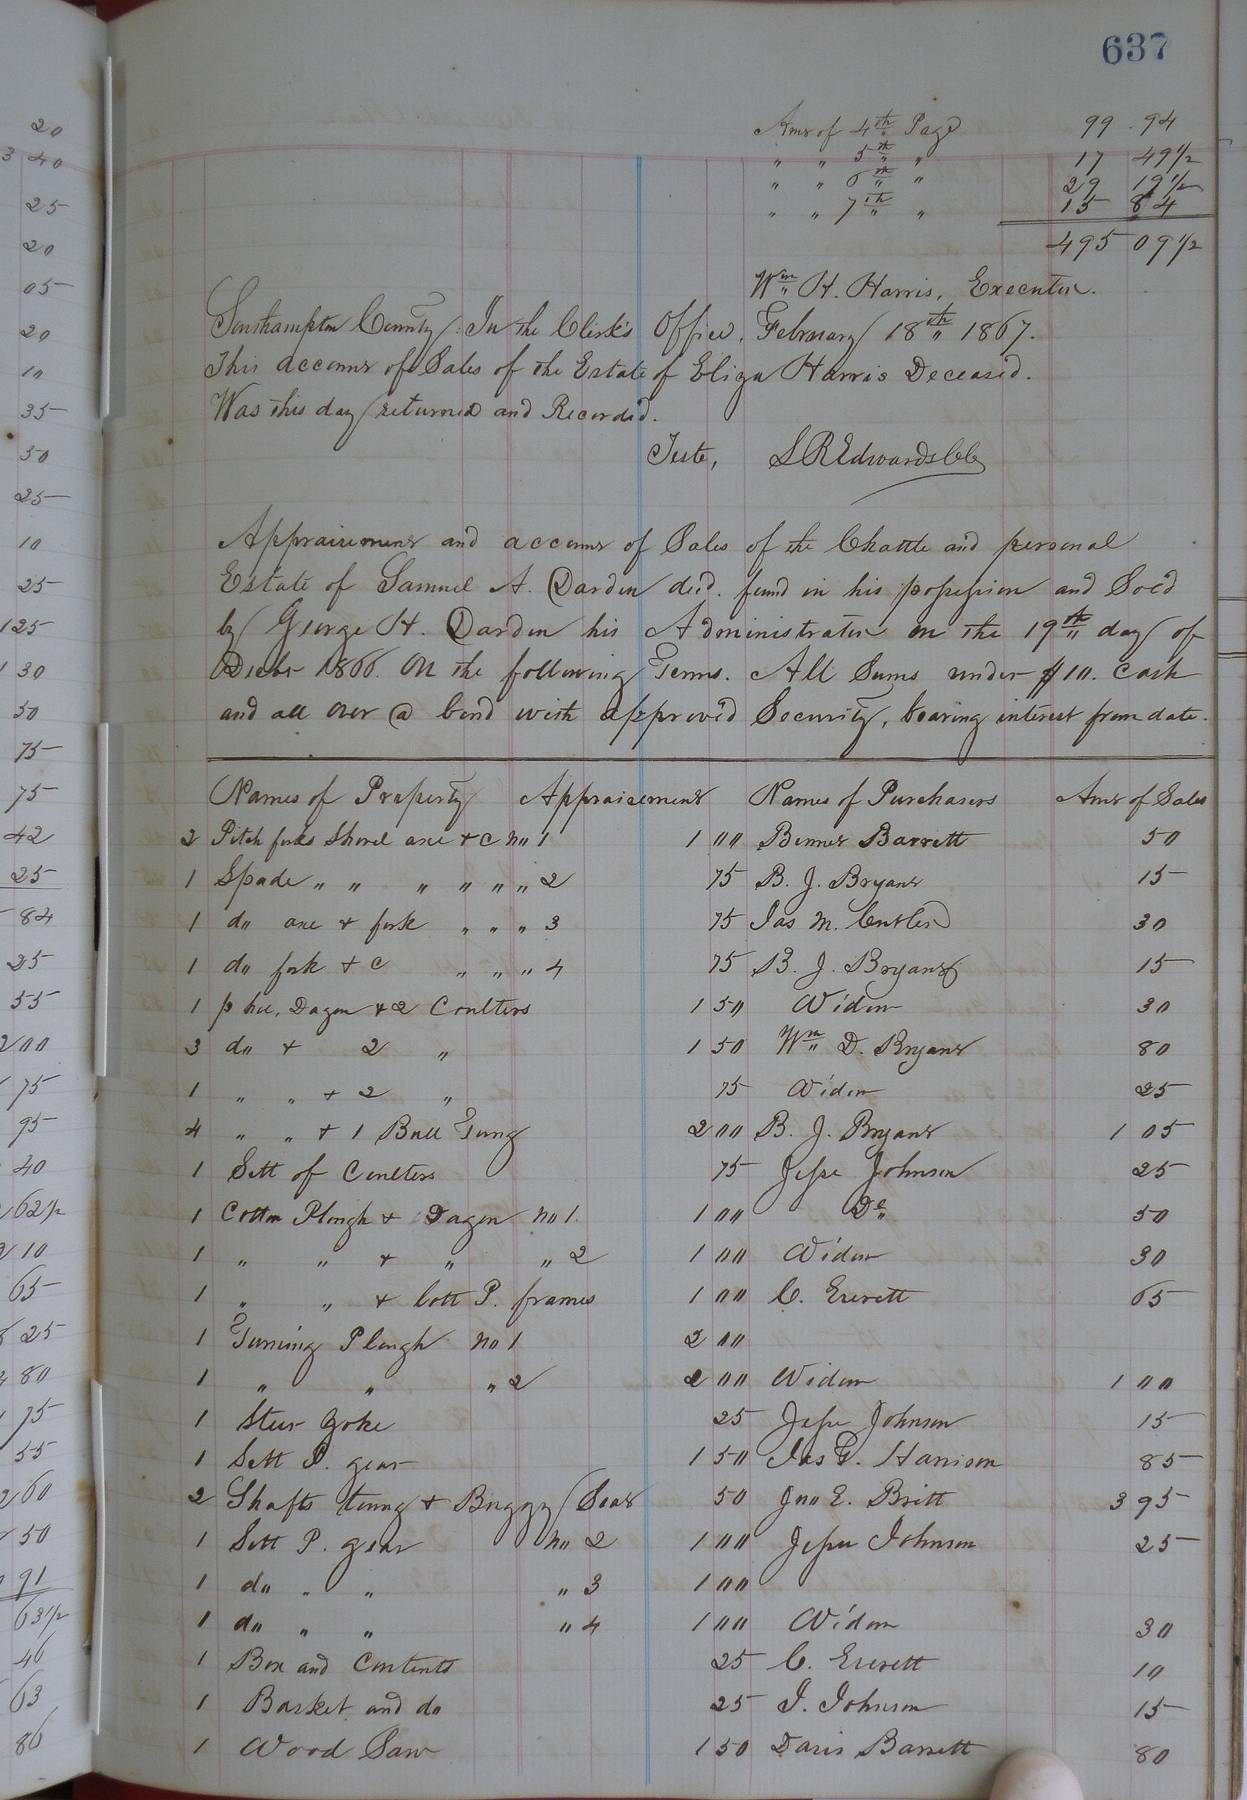 637
Amt of 4th Page 99 94
" " 5th " 17 49 1/2
" " 6th " 29 19 1/2
" " 7th " 15 84
495 09 1/2
Wm H. Harris, Executor.
Southampton County: In the Clerk's Office, February 18th 1867.
This account of Sales of the Estate of Eliza Harris Deceased.
Was this day returned and Recorded.
Teste, S R Edwards Clk
Appraisement and account of Sales of the Chattle and personal
Estate of Samuel A. Darden decd. found in his possession and Sold
by George H. Darden his Administrator on the 19th day of
Decbr 1866. On the following Terms. All Sums under $10. Cash
and all over @ bond with approved Security, bearing interest from date.
Names of Property Appraisement Names of Purchasers Amt of Sales
2 Pitch forks Shovel axe & C no 1 1 00 Bennet Barrett 50
1 Spade " " " " " " 2 75 B. J. Bryant 15
1 do axe & fork " " " 3 75 Jas M. Cutler 30
1 do fork & C " " " 4 75 B. J. Bryant 15
1 p hoe, Dagon & 2 Coulters 1 50 Widow 30
3 do & 2 " 1 50 Wm D. Bryant 80
1 " " & 2 " 75 Widow 25
4 " " & 1 Bull Tung 2 00 B. J. Bryant 1 05
1 Sett of Coulters 75 Jesse Johnson 25
1 Cotton Plough & Dagon no 1. 1 00 Do 50
1 " " & " " 2 1 00 Widow 30
1 " " & Cott P. frames 1 00 C. Everett 65
1 Turning Plough no 1 2 00
1 " " " 2 2 00 Widow 1 00
1 Steer Yoke 25 Jesse Johnson 15
1 Sett P. gear 1 50 Jas G. Harrison 85
2 Shafts tung & Buggy Seat 50 Jno E. Britt 3 95
1 Sett P. gear no 2 1 00 Jesse Johnson 25
1 do " " " 3 1 00
1 do " " " 4 1 00 Widow 30
1 Box and Contents 25 C. Everett 10
1 Basket and do 25 J. Johnson 15
1 Wood Saw 1 50 Davis Barrett 80
20
3 40
25
20
05
20
10
35
50
25
10
25
125
1 30
50
75
75
42
25
84
25
55
200
75
95
40
62 1/2
2 10
65
25
80
75
55
2 60
50
91
63 1/2
46
63
86